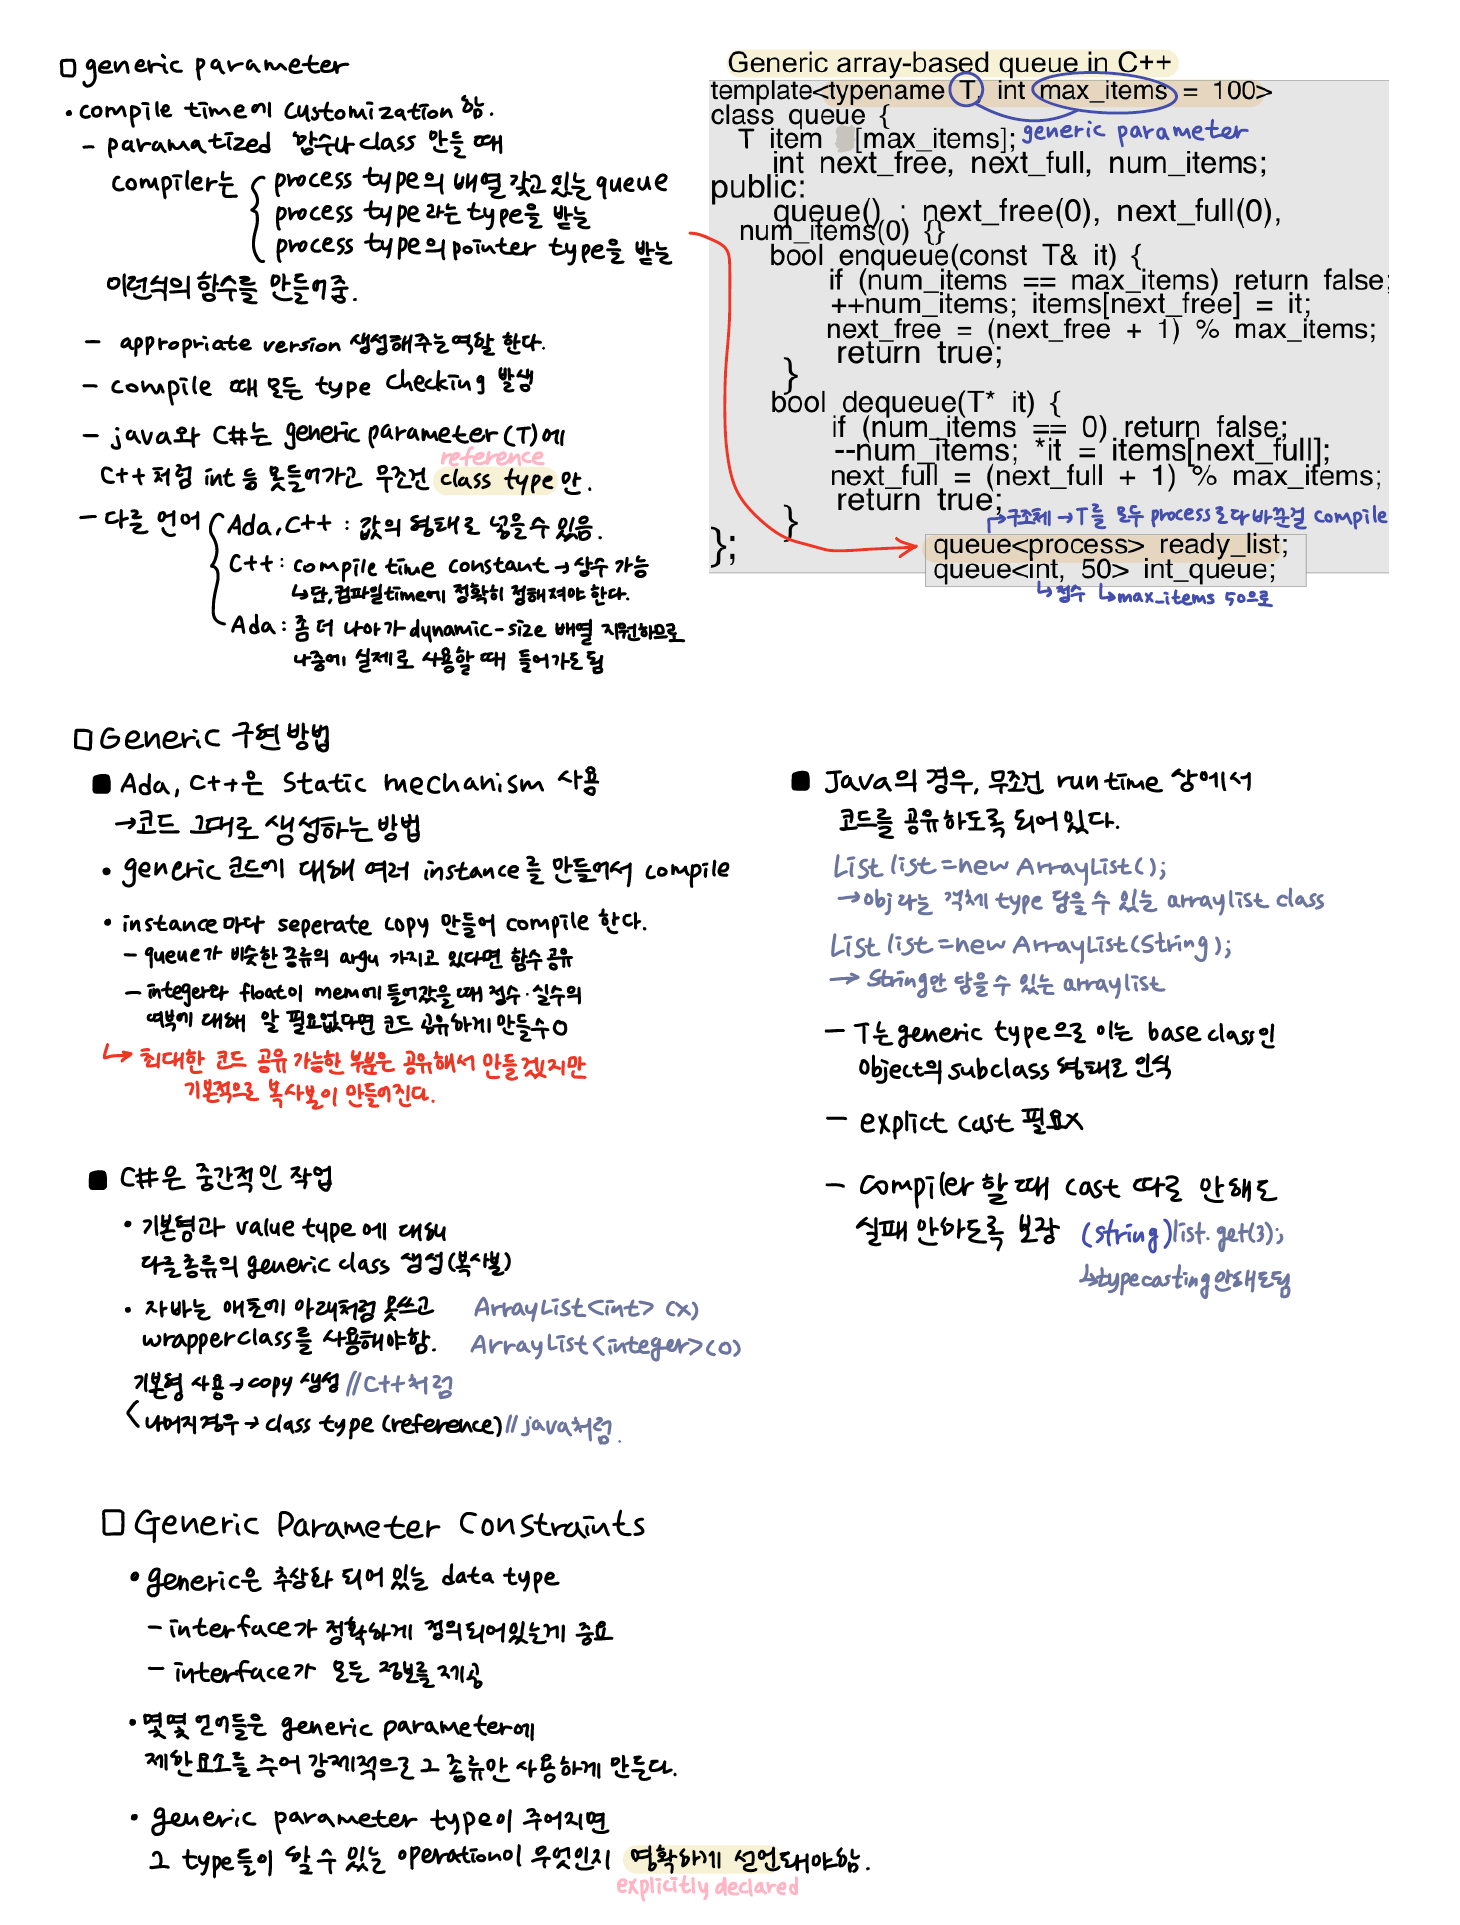 □ generic parameter
• compile time에 customization 함.
- paramatized 함수나 class 만들 때
compiler는 { process type의 배열 갖고 있는 queue
process type 라는 type을 받는
process type의 pointer type을 받는
이런식의 함수를 만들어줌.
- appropriate version 생성해주는 역할 한다.
- compile 때 모든 type checking 발생
- java와 C#는 generic parameter(T)에
reference
C++ 처럼 int 등 못들어가고 무조건 class type 만.
- 다른 언어 { Ada, C++ : 값의 형태로 넣을 수 있음.
C++ : compile time constant → 상수 가능
↳ 단, 컴파일time에 정확히 정해져야 한다.
Ada : 좀 더 나아가 dynamic-size 배열 지원하므로
나중에 실제로 사용할 때 들어가도 됨
Generic array-based queue in C++
template<typename T, int max_items = 100>
class queue {
generic parameter
T item [max_items];
int next_free, next_full, num_items;
public:
queue() : next_free(0), next_full(0),
num_items(0) {}
bool enqueue(const T& it) {
if (num_items == max_items) return false;
++num_items; items[next_free] = it;
next_free = (next_free + 1) % max_items;
return true;
}
bool dequeue(T* it) {
if (num_items == 0) return false;
--num_items; *it = items[next_full];
next_full = (next_full + 1) % max_items;
return true;
}
};
→ 구조체 → T를 모두 process로 다 바꾼걸 compile
queue<process> ready_list;
queue<int, 50> int_queue;
↳ 정수 ↳ max_items 50으로
□ Generic 구현 방법
■ Ada, C++은 static mechanism 사용
→ 코드 그대로 생성하는 방법
• generic 코드에 대해 여러 instance를 만들어서 compile
• instance마다 seperate copy 만들어 compile 한다.
- queue가 비슷한 종류의 argu 가지고 있다면 함수 공유
- integer와 float이 mem에 들어갔을 때 정수·실수의
여부에 대해 알 필요없다면 코드 공유하게 만들수 O
↳ 최대한 코드 공유 가능한 부분은 공유해서 만들겠지만
기본적으로 복사본이 만들어진다.
■ C#은 중간적인 작업
• 기본형과 value type 에 대해
다른종류의 generic class 생성(복사본)
• 자바는 애초에 아래처럼 못쓰고 ArrayList<int> (x)
wrapperclass를 사용해야함. ArrayList<integer>(O)
기본형 사용 → copy 생성 // C++처럼
나머지 경우 → class type (reference) // java처럼.
■ Java의 경우, 무조건 runtime 상에서
코드를 공유하도록 되어있다.
List list = new ArrayList();
→ obj 라는 객체 type 담을 수 있는 arraylist class
List list = new ArrayList(String);
→ String만 담을수 있는 arraylist
- T는 generic type으로 이는 base class인
object의 subclass 형태로 인식
- explict cast 필요X
- Compiler 할 때 cast 따로 안해도
실패 안하도록 보장 (string)list.get(3);
↳ typecasting 안해도됨
□ Generic Parameter Constraints
• generic은 추상화 되어 있는 data type
- interface가 정확하게 정의되어있는게 중요
- interface가 모든 정보를 제공
• 몇몇 언어들은 generic parameter에
제한요소를 주어 강제적으로 그 종류만 사용하게 만든다.
• generic parameter type이 주어지면
그 type들이 할 수 있는 operation이 무엇인지 명확하게 선언돼야함.
explicitly declared